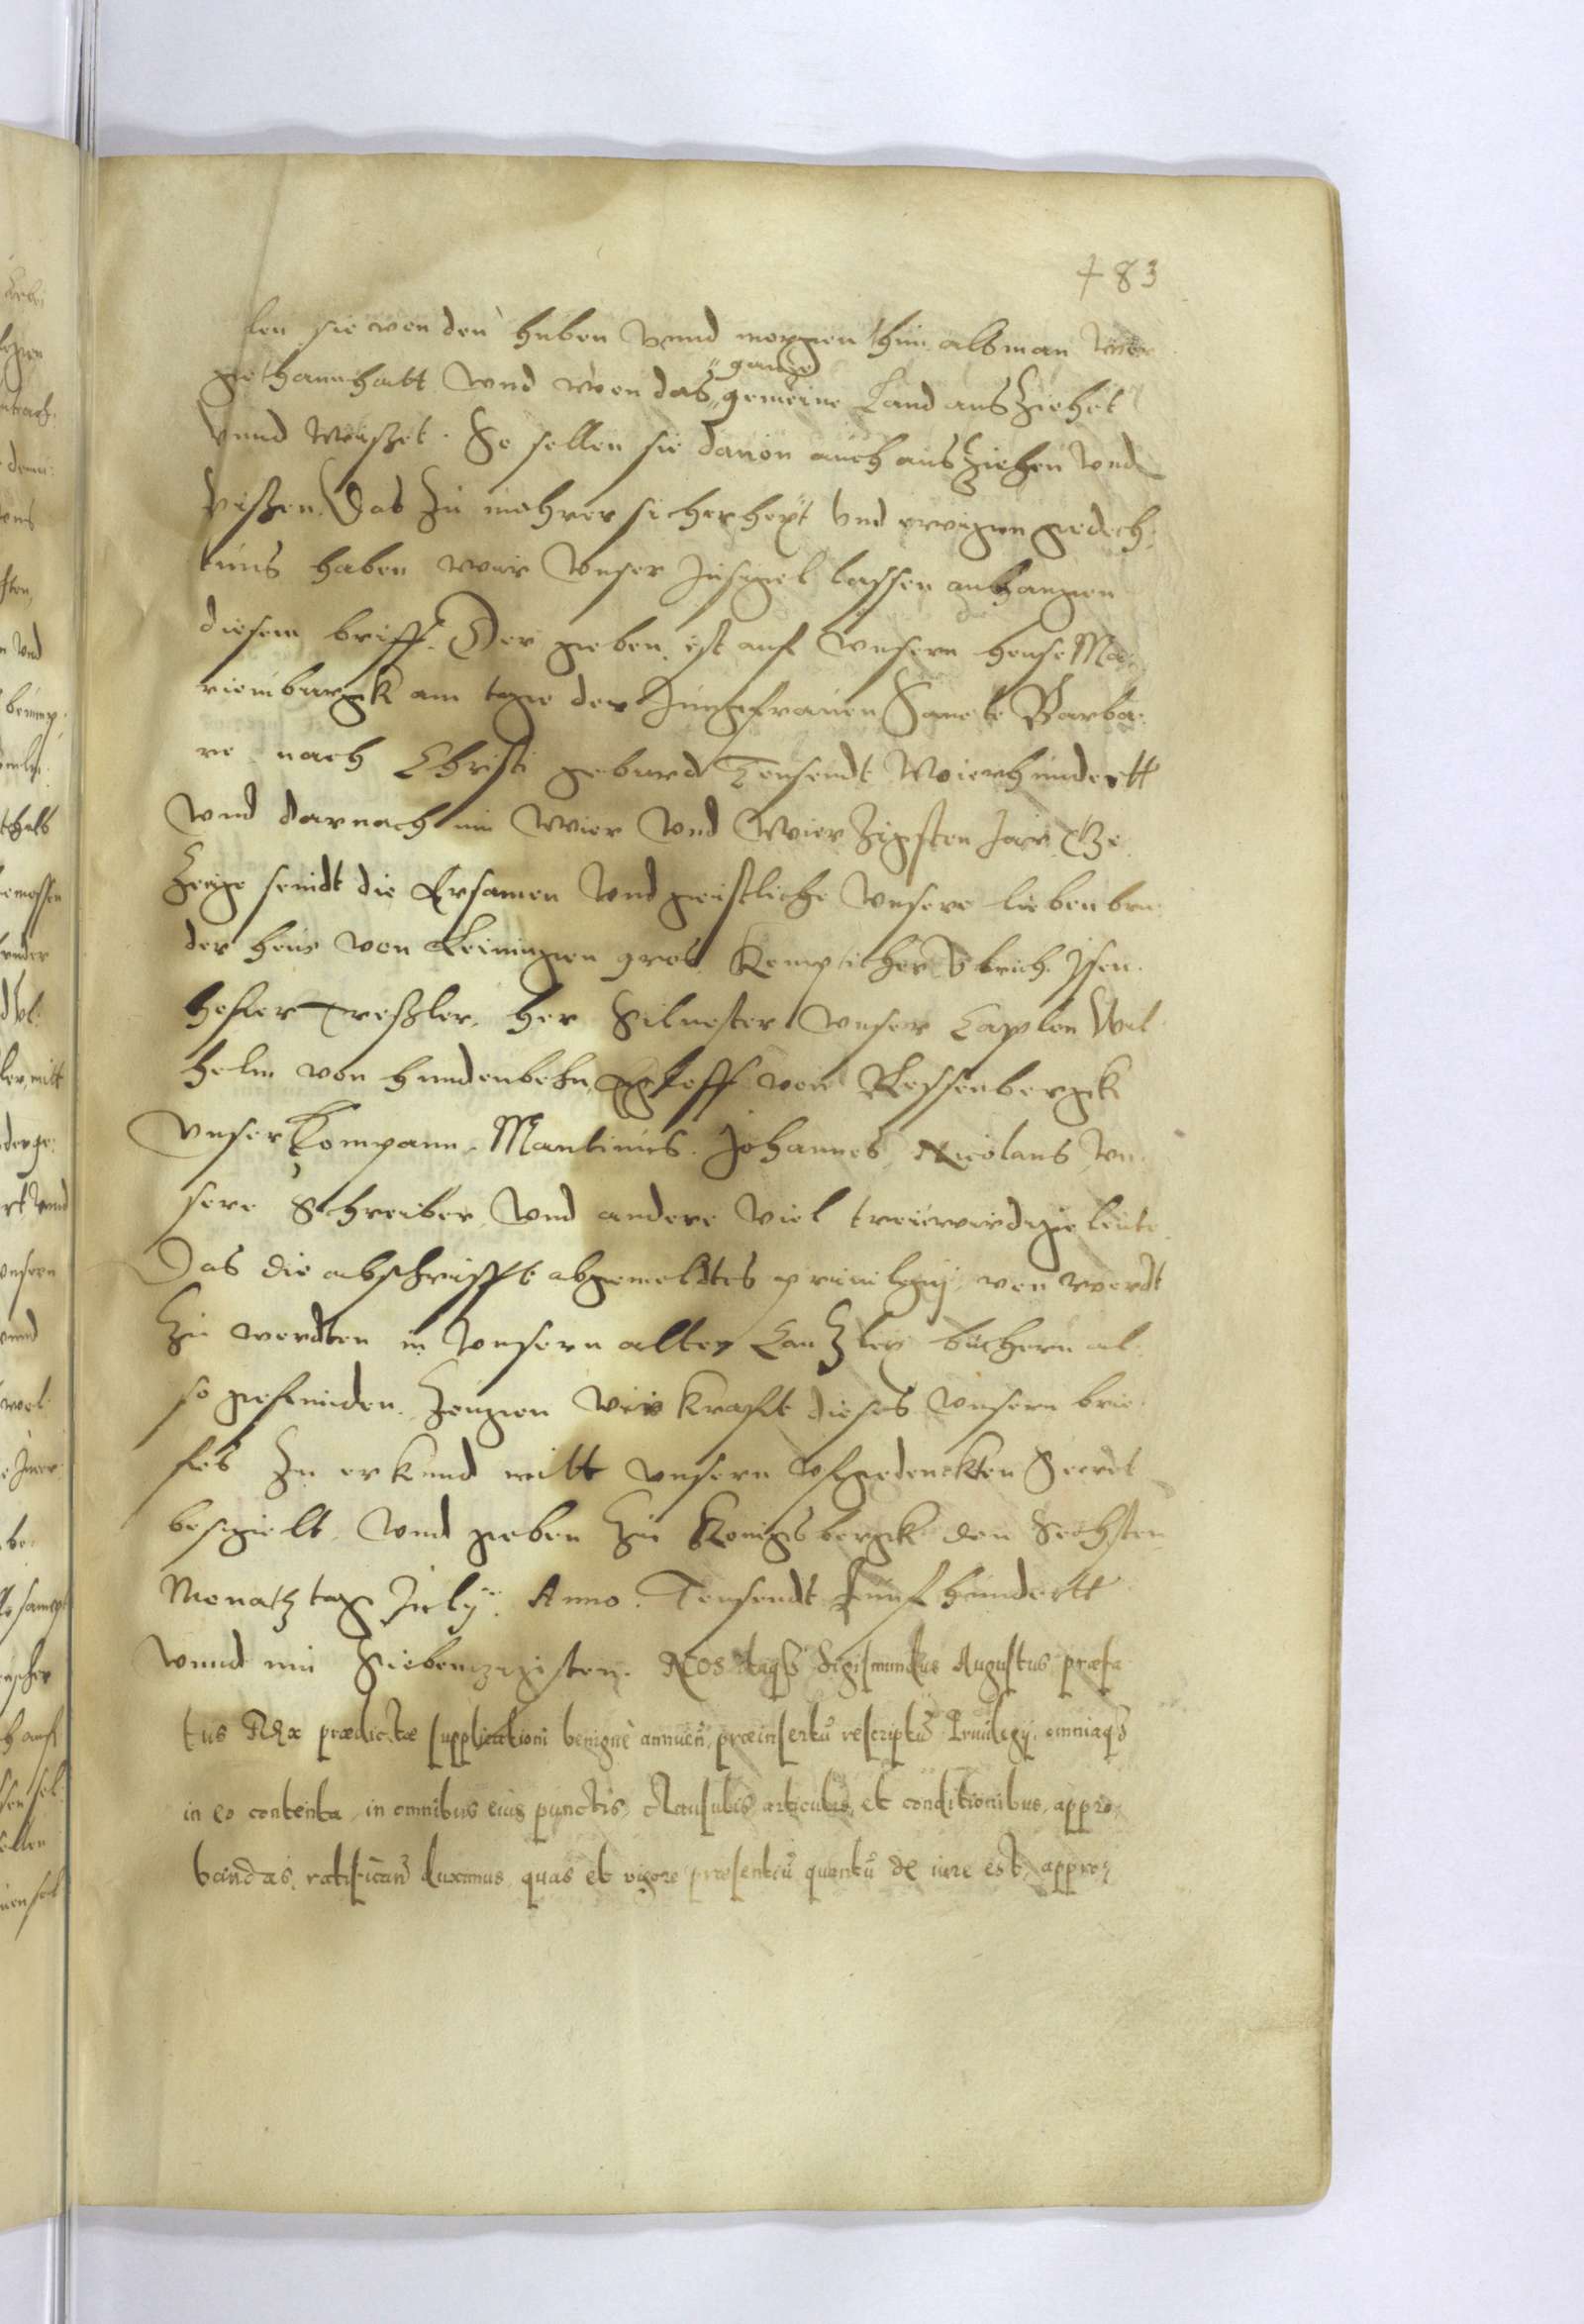 483
len sie von den huben vnnd morgen thun als man vor
gethann hatt vnd wen das gantze gemeine Land ausziehet
vnnd reiszet. So sollen sie dauon auch ausziehen vnd
reiszen. Das zu mehrer sicherheyt vnd ewigem gedech:
tnus haben wir vnser Insigel lassen anhangen
diesem briff. Der geben ist auf vnserm hause Ma:
rienburgk am tage der Jungfrauen Sancte Barba:
re nach Christi geburd Teusendt Vierhundertt
vnd darnach im vier vnd vierzigsten Jar. Ge:
zeuge seindt die Ersamen vnd geistliche vnsere lieben bru:
der von Leiningen gros Kompt her Vlrich Isen:
hofer Treszler, her Siluester vnser Caplon Wil:
helm von vnd von Ressenbergk
vnser Kompann. Martinus. Johannes Nicolaus vn:
sere Schreiber vnd andere viel treuwirdige leute.
Das die abschrifft abgemeldtes priuilegij von wordt
zu wordten in vnsern alten Canzley büchern al:
so gefunden. Zeugen wir krafft dieses vnsern brie:
fes Zu erkund mitt vnserm vfgedruckten Secret
besigelt. Vnd geben zu Konigsbergk den Sechsten
Monatz tag July. Anno. Teusendt Funfhundertt
vnnd im Siebenzigisten. Nos itaqз Sigismundus Augustus præfa
tus Rex prædictæ supplicationi benignè annuen̄, præinsertū rescriptū Priuilegij, omniaqз
in eo contenta, in omnibus eius punctis, clausulis, articulis, et conditionibus, appro:
bandas, ratifican̄ duximus, quas et vigore præsentiū quantū de iure est, appro: